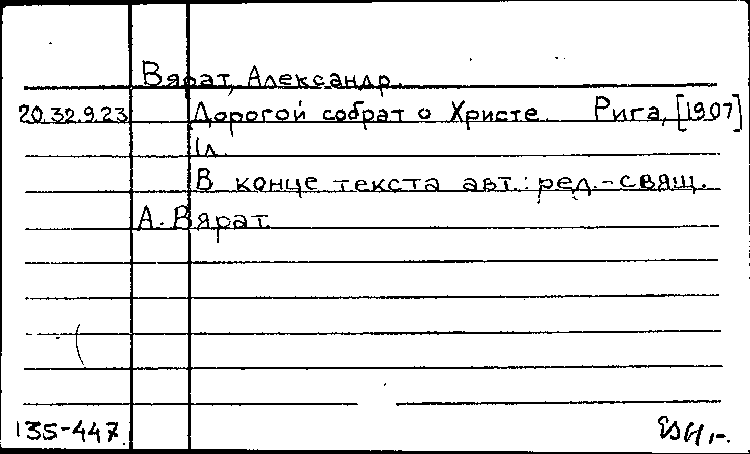 Вярат, Александр.
20.32.9.23 Дорогой собрат о Христе. Рига, [1907]
1л.
В конце текста авт.: ред.-свящ.
А. Вярат.
135-447